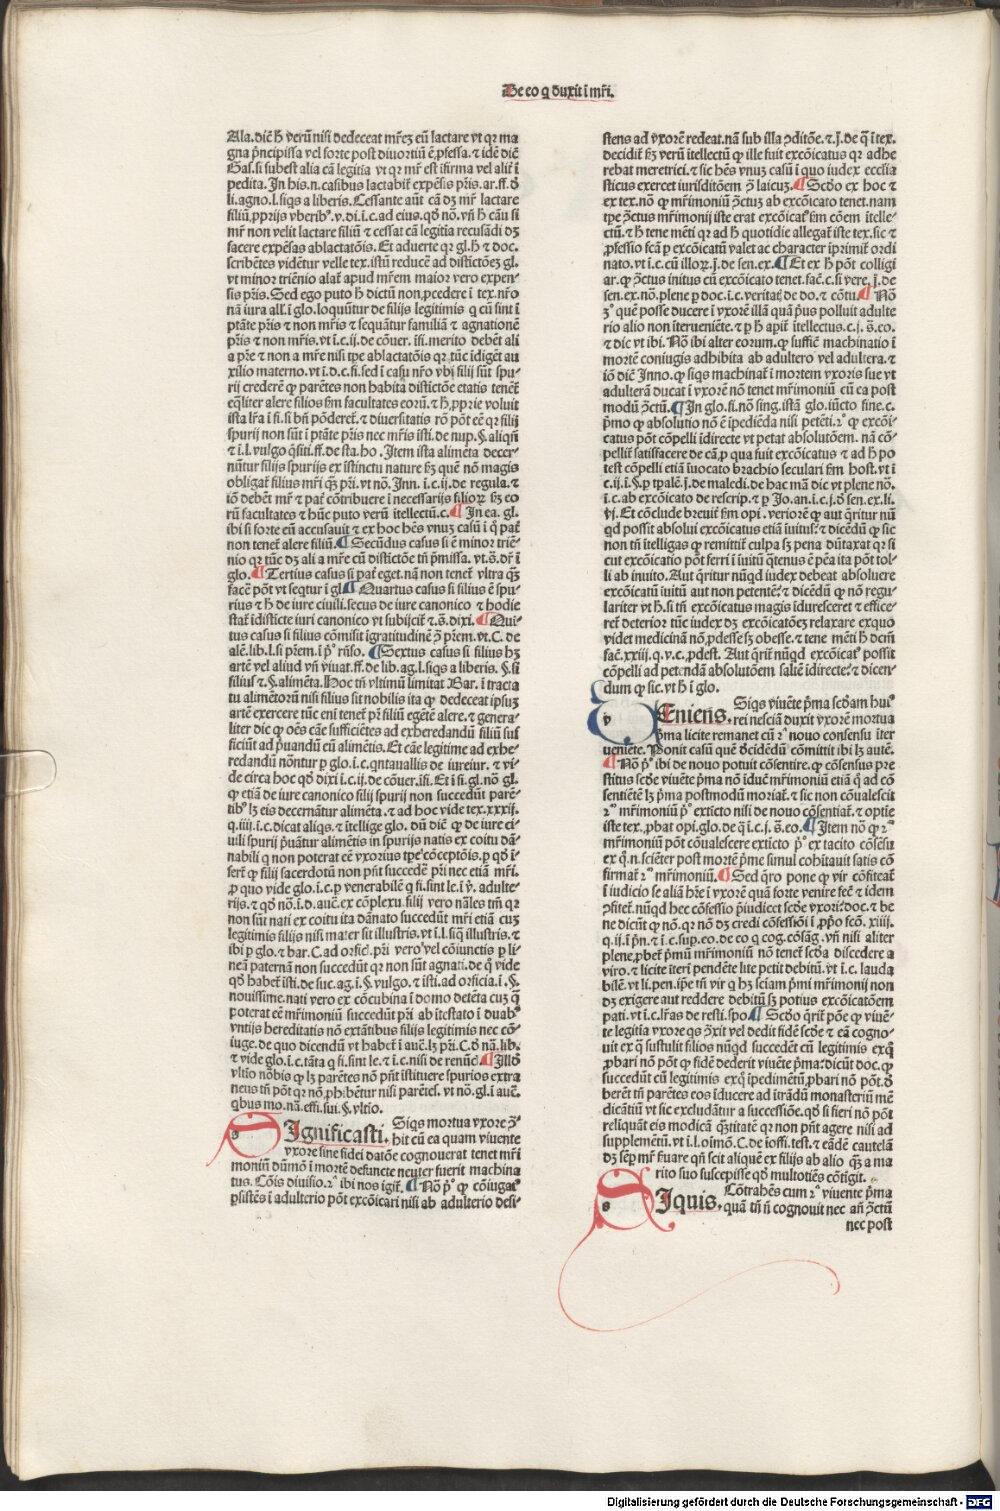 De eo q duxit ī mr̄i.
Ala. diē h̄ verū nisi dedeceat mr̄ez eū lactare vt qr ma
gna pncipissa vel forte post diuortiū ē ꝓfessa. ⁊ idē diē
Gas. si subest alia cā legitīa vt qr mr̄ est īfirma vel alit̄ ī
pedita. In his .n. casibus lactabit̄ expēsis pr̄is. ar. ff. d̄
li. agno. l. siqs a liberis. Cessante aūt cā dꝫ mr̄ lactare
filiū ꝓprijs vberibꝰ. v. di. i. c. ad eius. qd̄ nō. vn̄ h̄ cāu si
mr̄ non velit lactare filiū ⁊ cessat cā legitīa recusādi dꝫ
facere expēsas ablactatōis. Et aduerte qr gl. h̄ ⁊ doc.
scribētes vidētur velle tex. istū reducē ad distictōeꝫ gl.
vt minor triēnio alat̄ apud mr̄em maior vero expen-
sis pr̄is. Sed ego puto h̄ dictū non ꝓcedere ī tex. nr̄o
nā iura all. ī glo. loquūtur de filijs legitimis q cū sint ī
ptāte pr̄is ⁊ non mr̄is ⁊ sequātur familiā ⁊ agnationē
pr̄is ⁊ non mr̄is. vt i. c. ij. de cōuer. īfi. merito debēt ali
a pr̄e ⁊ non a mr̄e nisi tpe ablactatōis qr tūc īdigēt au
xilio materno. vt i. d. c. fi. sed ī casu nr̄o vbi filij sūt spu-
rij crederē ꝙ parētes non habita distictōe etatis tenēt̄
eq̄liter alere filios fm facultates eorū. ⁊ h̄ ꝓprie voluit
ista lr̄a ī fi. si bn̄ pōderet̄. ⁊ diuersitatis rō pōt eē qr filij
spurij non sūt ī ptāte pr̄is nec mr̄is isti. de nup. §. aliqn̄
⁊ i. l. vulgo q̄siti. ff. de sta. ho. Item ista alimēta decer-
nūtur filijs spurijs ex istinctu nature sꝫ quē nō magis
obligat̄ filius mr̄i qꝫ pr̄i. vt nō. Inn. i. c. ij. de regula. ⁊
iō debēt mr̄ ⁊ pat̄ cōtribuere ī necessarijs filioꝝ sꝫ eo
rū facultates ⁊ hūc puto verū ītellectū. c. ¶ In ea. gl.
ibi si forte eū accusauit ⁊ ex hoc hēs vnuꝫ casū ī q̄ pat̄
non tenet̄ alere filiū. ¶ Secūdus casus si ē minor triē-
nio qr tūc dꝫ ali a mr̄e cū distictōe tn̄ p̄missa. vt. s̄. dr̄ ī
glo. ¶ Tertius casus si pat̄ eget. nā non tenet̄ vltra qꝫ
facē pōt vt seqtur ī gl. ¶ Quartus casus si filius ē spu-
rius ⁊ h̄ de iure ciuili. secus de iure canonico ⁊ hodie
stat̄ īdisticte iuri canonico vt subijcit̄ ⁊. s̄. dixi. ¶ Qui-
tus casus si filius cōmisit īgratitudinē ꝯ pr̄em. vt. C. de
alē. lib. l. si pr̄em. ī pꝰ rn̄so. ¶ Sextus casus si filius hꝫ
artē vel aliud vn̄ viuat. ff. de lib. ag. l. siqs a liberis. §. si
filius ⁊ §. alimēta. Hoc tn̄ vltimū limitat Bar. ī tracta
tu alimētorū nisi filius sit nobilis ita ꝙ dedeceat ipsuꝫ
artē exercere tūc eni tenet̄ pr̄ filiū egētē alere. ⁊ genera-
liter dic ꝙ oēs cāe sufficiētes ad exheredandū filiū suf
ficiūt ad p̄uandū eū alimētis. Et cāe legitime ad exhe-
redandū nōntur p glo. i. c. quntauallis de iureiur. ⁊ vi-
de circa hoc qd̄ dixi i. c. ij. de cōuer. īfi. Et ī fi. gl. nō gl.
ꝙ etiā de iure canonico filij spurij non succedūt parē-
tibꝰ lꝫ eis decernātur alimēta. ⁊ ad hoc vide tex. xxxij.
q. iiij. i. c. dicat aliqs. ⁊ ītellige glo. dū diē ꝙ de iure ci-
uili spurij p̄uātur alimētis in spurijs natis ex coitu dā-
nabili q non poterat eē vxorius tpe cōceptōis. p qd̄ ī-
fert̄ ꝙ filij sacerdotū non pn̄t succedē pr̄i nec etiā mr̄i.
ꝓ quo vide glo. i. c. p venerabilē q fi. sint le. ī v̄. adulte-
rijs. ⁊ qd̄ nō. i. d. auē. ex cōplexu. filij vero nāles tm̄ qr
non sūt nati ex coitu ita dānato succedūt mr̄i etiā cuꝫ
legitimis filijs nisi mater sit illustris. vt i. l. siq̄ illustris. ⁊
ibi p glo. ⁊ bar. C. ad orfic. pr̄i vero vel cōiunctis p li-
neā paternā non succedūt qr non sūt agnati. de q̄ vide
qd̄ habet̄ isti. de suc. ag. ī. §. vulgo. ⁊ isti. ad orficia. ī. §.
nouissime. nati vero ex cōcubina ī domo detēta cuꝫ q̄
poterat eē mr̄imoniū succedūt pr̄i ab ītestato ī duabꝰ
vntijs hereditatis nō extātibus filijs legitimis nec cō-
iuge. de quo dicendū vt habet̄ ī auē. lꝫ pr̄i. C. d̄ nā. lib.
⁊ vide glo. i. c. tāta q fi. sint le. ⁊ i. c. nisi de renūc̄. ¶ Illd̄
vltīo nōbis ꝙ lꝫ parētes nō pn̄t īstituere spurios extra
neus tn̄ pōt qr nō ꝓhibētur nisi parētēs. vt nō. gl. ī auē.
qbus mo. nā. effi. sui. §. vltīo.
SIgnificasti. Siqs mortua vxore ꝯ-
hit cū ea quam viuente
vxore fine fidei datōe cognouerat tenet mr̄i
moniū dūmō ī mortē defuncte neuter fuerit machina
tus. Cōis diuisio. 2ª ibi nos igit̄. ¶ Nō pꝰ ꝙ cōiugat̄
psistēs ī adulterio pōt excōicari nisi ab adulterio desi-
stens ad vxorē redeat. nā sub illa ꝯditōe. ⁊. j. de q̄ ī tex.
decidit̄ sꝫ verū ītellectū ꝙ ille fuit excōicatus qr adhe
rebat meretrici. ⁊ sic hēs vnuꝫ casū ī quo iudex ecclīa
sticus exercet iurisditōem ꝯ laicuꝫ. ¶ Scd̄o ex hoc ⁊
ex tex. nō ꝙ mr̄imoniū ꝯctuꝫ ab excōicato tenet. nam
tpe ꝯctus mr̄imonij iste erat excōicatꝰ fm cōem ītelle-
ctū. ⁊ h̄ tene mēti qr ad h̄ quotidie allegat̄ iste tex. sic ⁊
ꝓfessio fcā p excōicatū valet ac character īprimit̄ ordi
nato. vt i. c. cū illoꝝ. j. de sen. ex. ¶ Et ex h̄ pōt colligi
ar. ꝙ ꝯctus initus cū excōicato tenet. fac̄. c. si vere. j. de
sen. ex. nō. plene p doc. i. c. veritatꝫ de do. ⁊ cōtu. ¶ Nō
3ꝰ quē posse ducere ī vxorē illā quā p̄us polluit adulte
rio alio non īterueniēte. ⁊ p h̄ apīt̄ ītellectus. c. j. s̄. eo.
⁊ dic vt ibi. Nō ibi alter eorum. ꝙ sufficē machinatio ī
mortē coniugis adhibita ab adultero vel adultera. ⁊
iō diē Inno. ꝙ siqs machinat̄ ī mortem vxoris sue vt
adulterā ducat ī vxorē nō tenet mr̄imoniū cū ea post
modū ꝯctū. ¶ In glo. fi. nō sing. istā glo. iūcto fine. c.
p̄mo ꝙ absolutio nō ē īpediēda nisi petēti. 2º ꝙ excōi-
catus pōt cōpelli īdirecte vt petat absolutōem. nā cō-
pellit̄ satisfacere de cā p qua fuit excōicatus ⁊ ad h̄ po
test cōpelli etiā īuocato brachio seculari fm host. vt i
c. ij. ī. §. p tpalē. j. de maledi. de hac mā dic vt plene nō.
i. c. ab excōicato de rescrip. ⁊ p Jo. an. i. c. j. d̄ sen. ex. li.
vj. Et cōclude breuit̄ fm opi. veriorē ꝙ aut q̄ritur nū
qd possit absolui excōicatus etiā īuitus. ⁊ dicēdū ꝙ sic
non tn̄ ītelligas ꝙ remittit̄ culpa sꝫ pena dūtaxat qr si
cut excōicatio pōt ferri ī īuitū q̄tenus ē pēa ita pōt tol-
li ab inuito. Aut q̄ritur nūqd iudex debeat absoluere
excōicatū īuitū aut non petentē. ⁊ dicēdū ꝙ nō regu-
lariter vt h̄. si tn̄ excōicatus magis īduresceret ⁊ effice-
ret̄ deterior tūc iudex dꝫ excōicatōeꝫ relaxare exquo
videt medicinā nō ꝓdesse sꝫ obesse. ⁊ tene mēti h̄ dcm̄
fac̄. xxiij. q. v. c. ꝓdest. Aut q̄rit̄ nūqd excōicatꝰ possit
cōpelli ad petendā absolutōem saltē īdirecte. ⁊ dicen-
dum ꝙ sic. vt h̄ ī glo.
VEniens. Siqs viuēte p̄ma scd̄am huiꝰ
rei nesciā duxit vxorē mortua
p̄ma licite remanet cū 2ª nouo consensu iter
ueniēte. Ponit casū quē d̄cidēdū cōmittit ibi lꝫ autē.
¶ Nō pꝰ ibi de nouo potuit cōsentire. ꝙ cōsensus pre
stitus scd̄e viuēte p̄ma nō iduc̄ mr̄imoniū etiā q̄ ad cō
sentiētē lꝫ p̄ma postmodū moriat̄. ⁊ sic non cōualescit
2ᵐ mr̄imoniū pꝰ exticto nisi de nouo cōsentiat̄. ⁊ optie
iste tex. ꝓbat opi. glo. de q̄ i. c. j. s̄. eo. ¶ Item nō ꝙ 2ᵐ
mr̄imoniū pōt cōualescere exticto pꝰ ex tacito cōsēsu
ex q̄. n. sciēter post mortē p̄me simul cohītauit satis cō
firmat̄ 2ᵐ mr̄imoniū. ¶ Sed q̄ro pone ꝙ vir cōfiteat̄
ī iudicio se aliā hr̄e ī vxorē quā forte venire fec̄ ⁊ idem
ꝯfitet̄. nūqd hec cōfessio p̄iudicet scd̄e vxori. doc. ⁊ be
ne dicūt ꝙ nō. qr nō dꝫ credi cōfessiōi ī ꝓp̄o fcō. xiiij.
q. ij. ī pn̄. ⁊ i. c. sup. eo. de eo q cog. cōsāg. vn̄ nisi aliter
plene ꝓbet̄ p̄mū mr̄imoniū nō tenet̄ scd̄a discedere a
viro. ⁊ licite iteri pendēte lite petit debitū. vt i. c. lauda
bilē. vt li. pen. ipē tn̄ vir q hꝫ sciam p̄mi mr̄imonij non
dꝫ exigere aut reddere debitū sꝫ potius excōicatōem
pati. vt i. c. lr̄as de resti. spo. ¶ Scd̄o q̄rit̄ pōe ꝙ viuē-
te legitīa vxore qs ꝯxit vel dedit fidē scd̄e ⁊ eā cogno-
uit ex q̄ sustulit filios nūqd succedēt cū legitimis exq̄
ꝓbari nō pōt ꝙ fidē dederit viuēte p̄ma. dicūt doc. ꝙ
succedūt cū legitimis exq̄ īpedimētū ꝓbari nō pōt. d̄
berēt tn̄ parētes eos īducere ad ītrādū monasteriū mē
dicātiū vt sic excludātur a successiōe. qd̄ si fieri nō pōt
reliquāt eis modicā q̄titatē qr non pn̄t agere nisi ad
supplemētū. vt i. l. oīmō. C. de ioffi. test. ⁊ eādē cautelā
dꝫ sēp mr̄ fuare qn̄ scit aliquē ex filijs ab alio qꝫ a ma
rito suo suscepisse qd̄ multotiēs cōtigit.
SIquis. Cōtrahēs cum 2ª viuente p̄ma
quā tn̄ n̄ cognouit nec añ ꝯctū
nec post
Digitalisierung gefördert durch die Deutsche Forschungsgemeinschaft - DFG